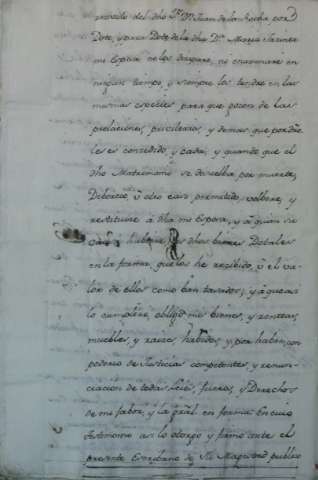 recevido del dho Sr. Dn. Juan de la Rocha por
Dote, y para Dote de la dha Da. Maria
mi Esposa no los disipare, ni enagenare en
ningun tiempo, y siempre los tendre en las
mismas especies para que gocen de las
prelaciones, privilexios, y demas que por dro.
les es concedido, y cada, y quando que el
dho Matrimonio se disuelba por muerte,
Diborcio, ù otro caso premitido, volbere, y
restituire à dha mi Esposa, y à quien su
hubiere, los dhos bienes Dotales
en la forma, que los he recibido, ù el va-
lor de ellos como ban tasados; y à que asi
lo cumplire, obligo mis bienes, y rentas,
muebles, y raices, habidos, y por haber, con
poderio de Justicias competentes, y renun-
ciacion de todas Leies, fueros, y Derechos
de mi fabor, y la gral. en forma: En cuio
testimonio asi lo otorgo y firmo ante el
presente Escribano de Su Magestad publico